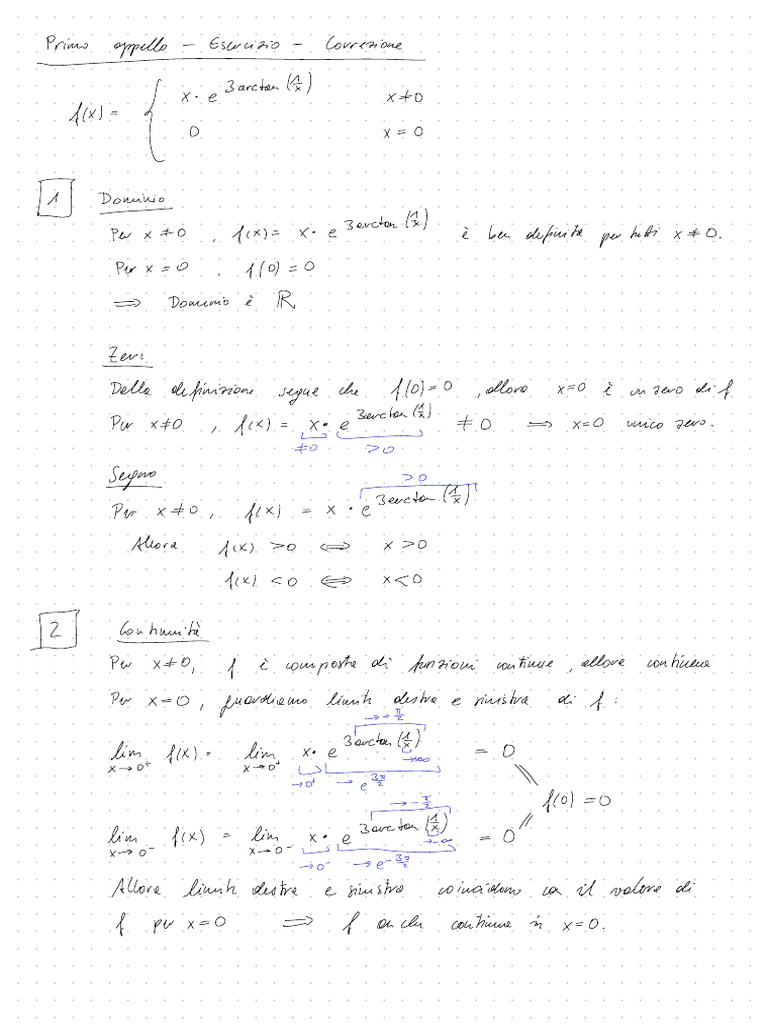 Primo appello – Esercizio – Correzione
f(x) = { x · e^{3 arctan (1/x)} x ≠ 0
0 x = 0
1 Dominio
Per x ≠ 0, f(x) = x · e^{3 arctan (1/x)} è ben definita per tutti x ≠ 0.
Per x = 0, f(0) = 0
⟹ Dominio è ℝ
Zeri
Dalla definizione segue che f(0) = 0, allora x = 0 è un zero di f
Per x ≠ 0, f(x) = x · e^{3 arctan (1/x)} ≠ 0 ⟹ x = 0 unico zero.
≠0 >0
Segno
>0
Per x ≠ 0, f(x) = x · e^{3 arctan (1/x)}
Allora f(x) > 0 ⟺ x > 0
f(x) < 0 ⟺ x < 0
2 Continuità
Per x ≠ 0, f è composta di funzioni continue, allora continua
Per x = 0, guardiamo limiti destra e sinistra di f:
→ + π/2
lim x→0⁺ f(x) = lim x→0⁺ x · e^{3 arctan (1/x)} = 0
→0⁺ → e^{3π/2} →+∞
f(0) = 0
→ – π/2
lim x→0⁻ f(x) = lim x→0⁻ x · e^{3 arctan (1/x)} = 0
→0⁻ → e^{–3π/2} →–∞
Allora limiti destra e sinistra coincidono con il valore di
f per x = 0 ⟹ f anche continua in x = 0.